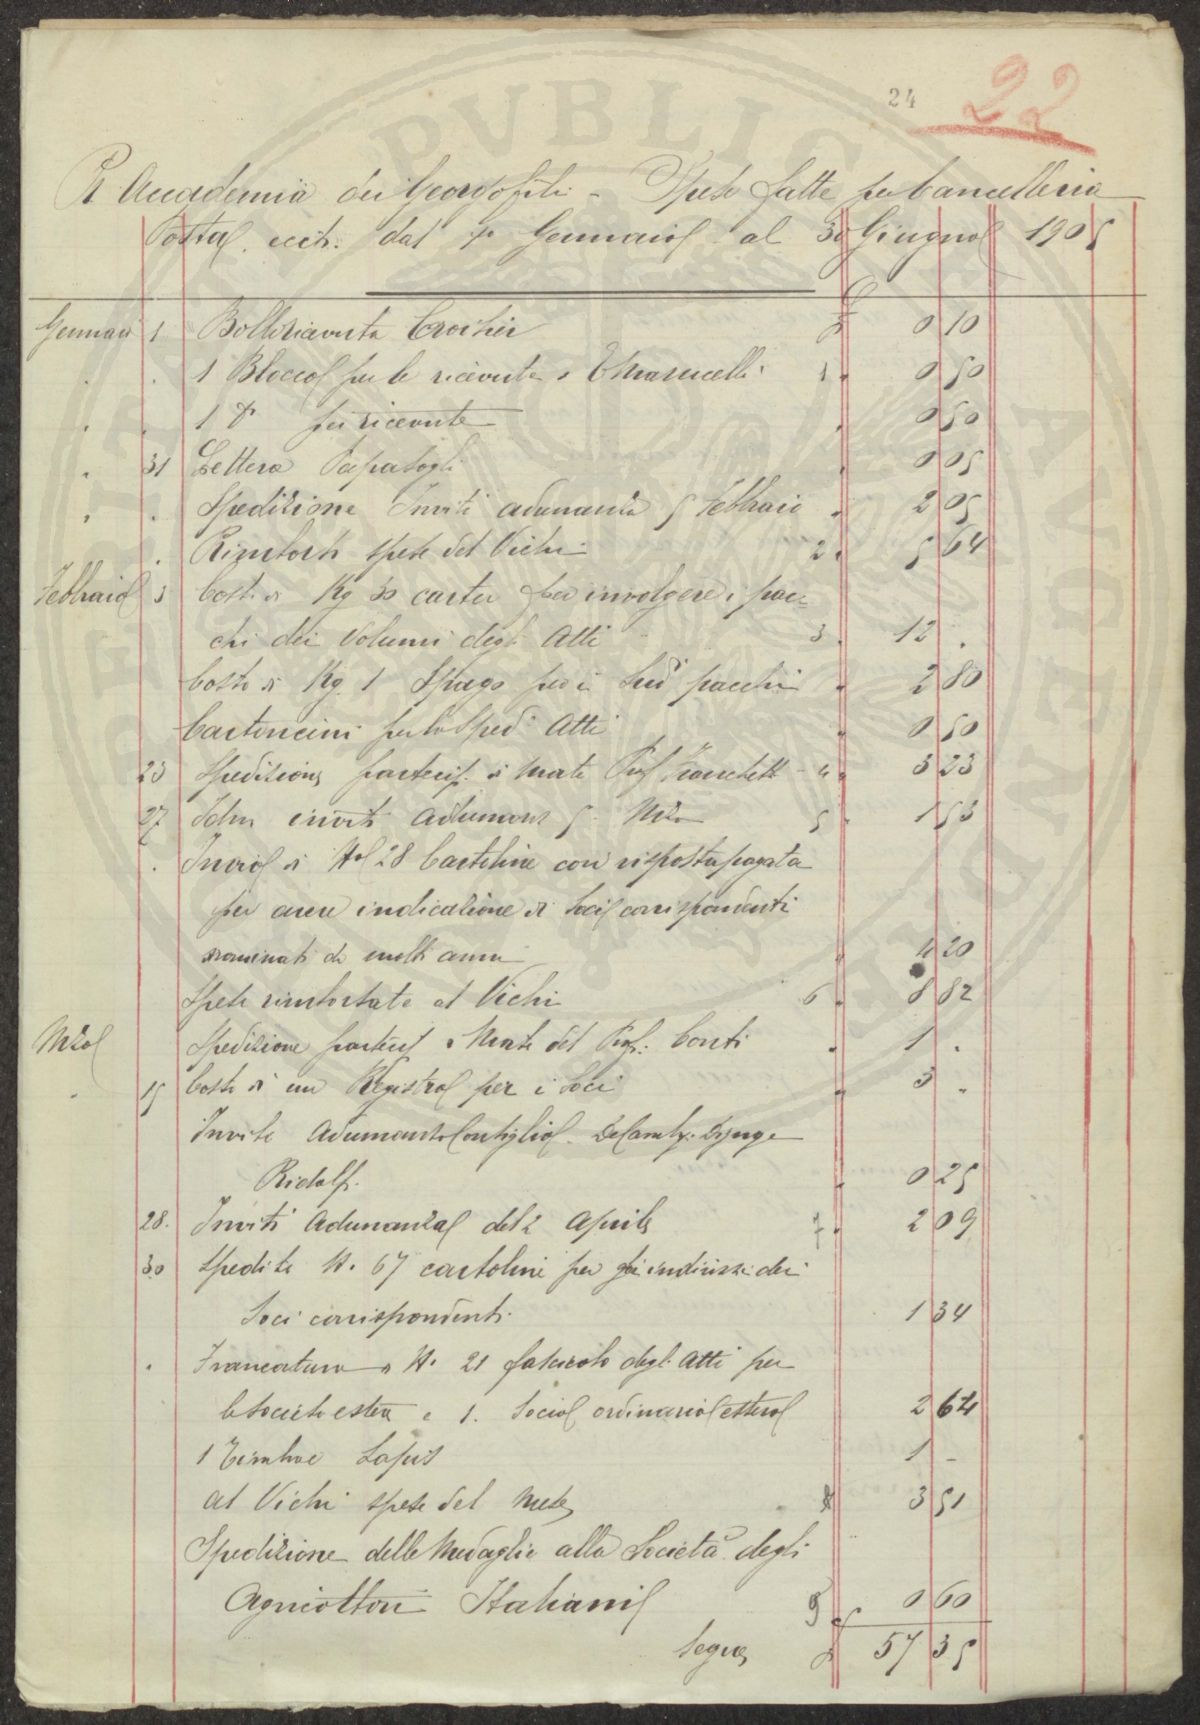 24
22
R. Accademia dei Georgofili - Spese fatte per Cancelleria
Postal. ecc. dal 1° Gennaio al 30 Giugno 1905
Gennaio 1 Bollo ricevuta £ 0 10
" . 1 Blocco per le ricevute 1. 0 50
" . 1 d° per ricevute " 0 50
" 31 Lettera " 0 05
" . Spedizione Inviti adunanza 5 Febbraio " 2 05
. Rimborso spese del Vichi 2. 5 64
Febbraio 3 Costo di Kg 30 carta per involgere i pac=
chi dei Volumi degli Atti 3. 12 .
Costo di Kg. 1 Spago per i sud pacchi " 2 80
Cartoncini per la Sped: Atti " 0 50
23 Spedizione partecip. di Morte Prof Franchetti - 4. 3 23
27 Idem inviti adunanza 5. Mzo 5. 1 53
. Invio di N° 28 Cartoline con risposta pagata
per avere indicazione di Soci corrispondenti
nominati da molti anni " 4 20
Spese rimborsate al Vichi 6. 8 82
Mzo Spedizione partecip di Morte del Prof: Conti " 1 .
" 15 Costo di un Registro per i Soci " 3 "
Invito Adunanza Consiglio.
Ridolfi. " 0 25
28. Inviti Adunanza del 2 Aprile 7. 2 09
30 Spedite N. 67 cartoline per gli indirizzi dei
Soci corrispondenti. 1 34
. Francatura di N. 21 fascicolo degli Atti per
le Società estere e 1. Socio ordinario estero 2 64
1 Lapis 1 -
Al Vichi spese del Mese 8 3 51
Spedizione delle Medaglie alla Società degli
Agricoltori Italiani 9 0 60
Segue £ 57 35